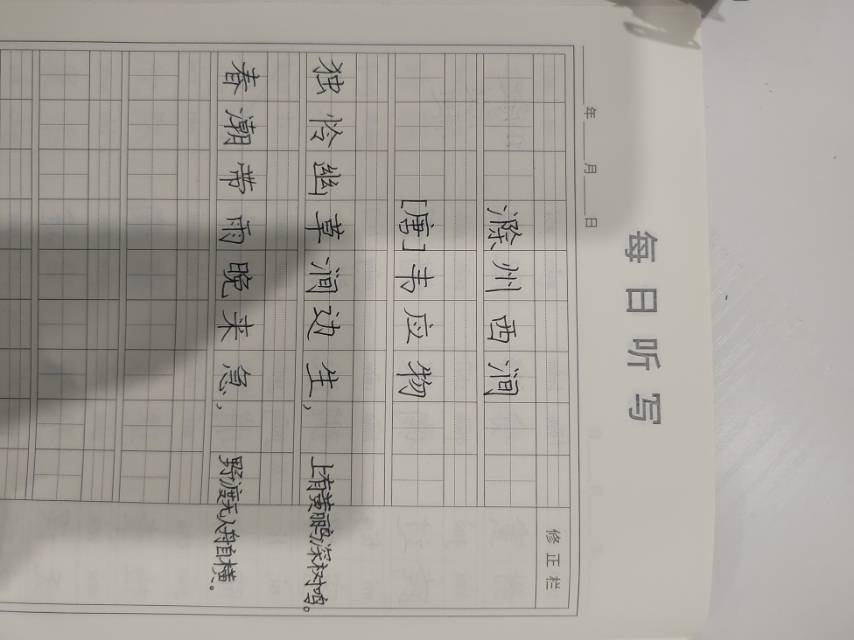 每日听写
年 月 日
修正栏
滁州西涧
[唐]韦应物
独怜幽草涧边生，上有黄鹂深树鸣。
春潮带雨晚来急，野渡无人舟自横。